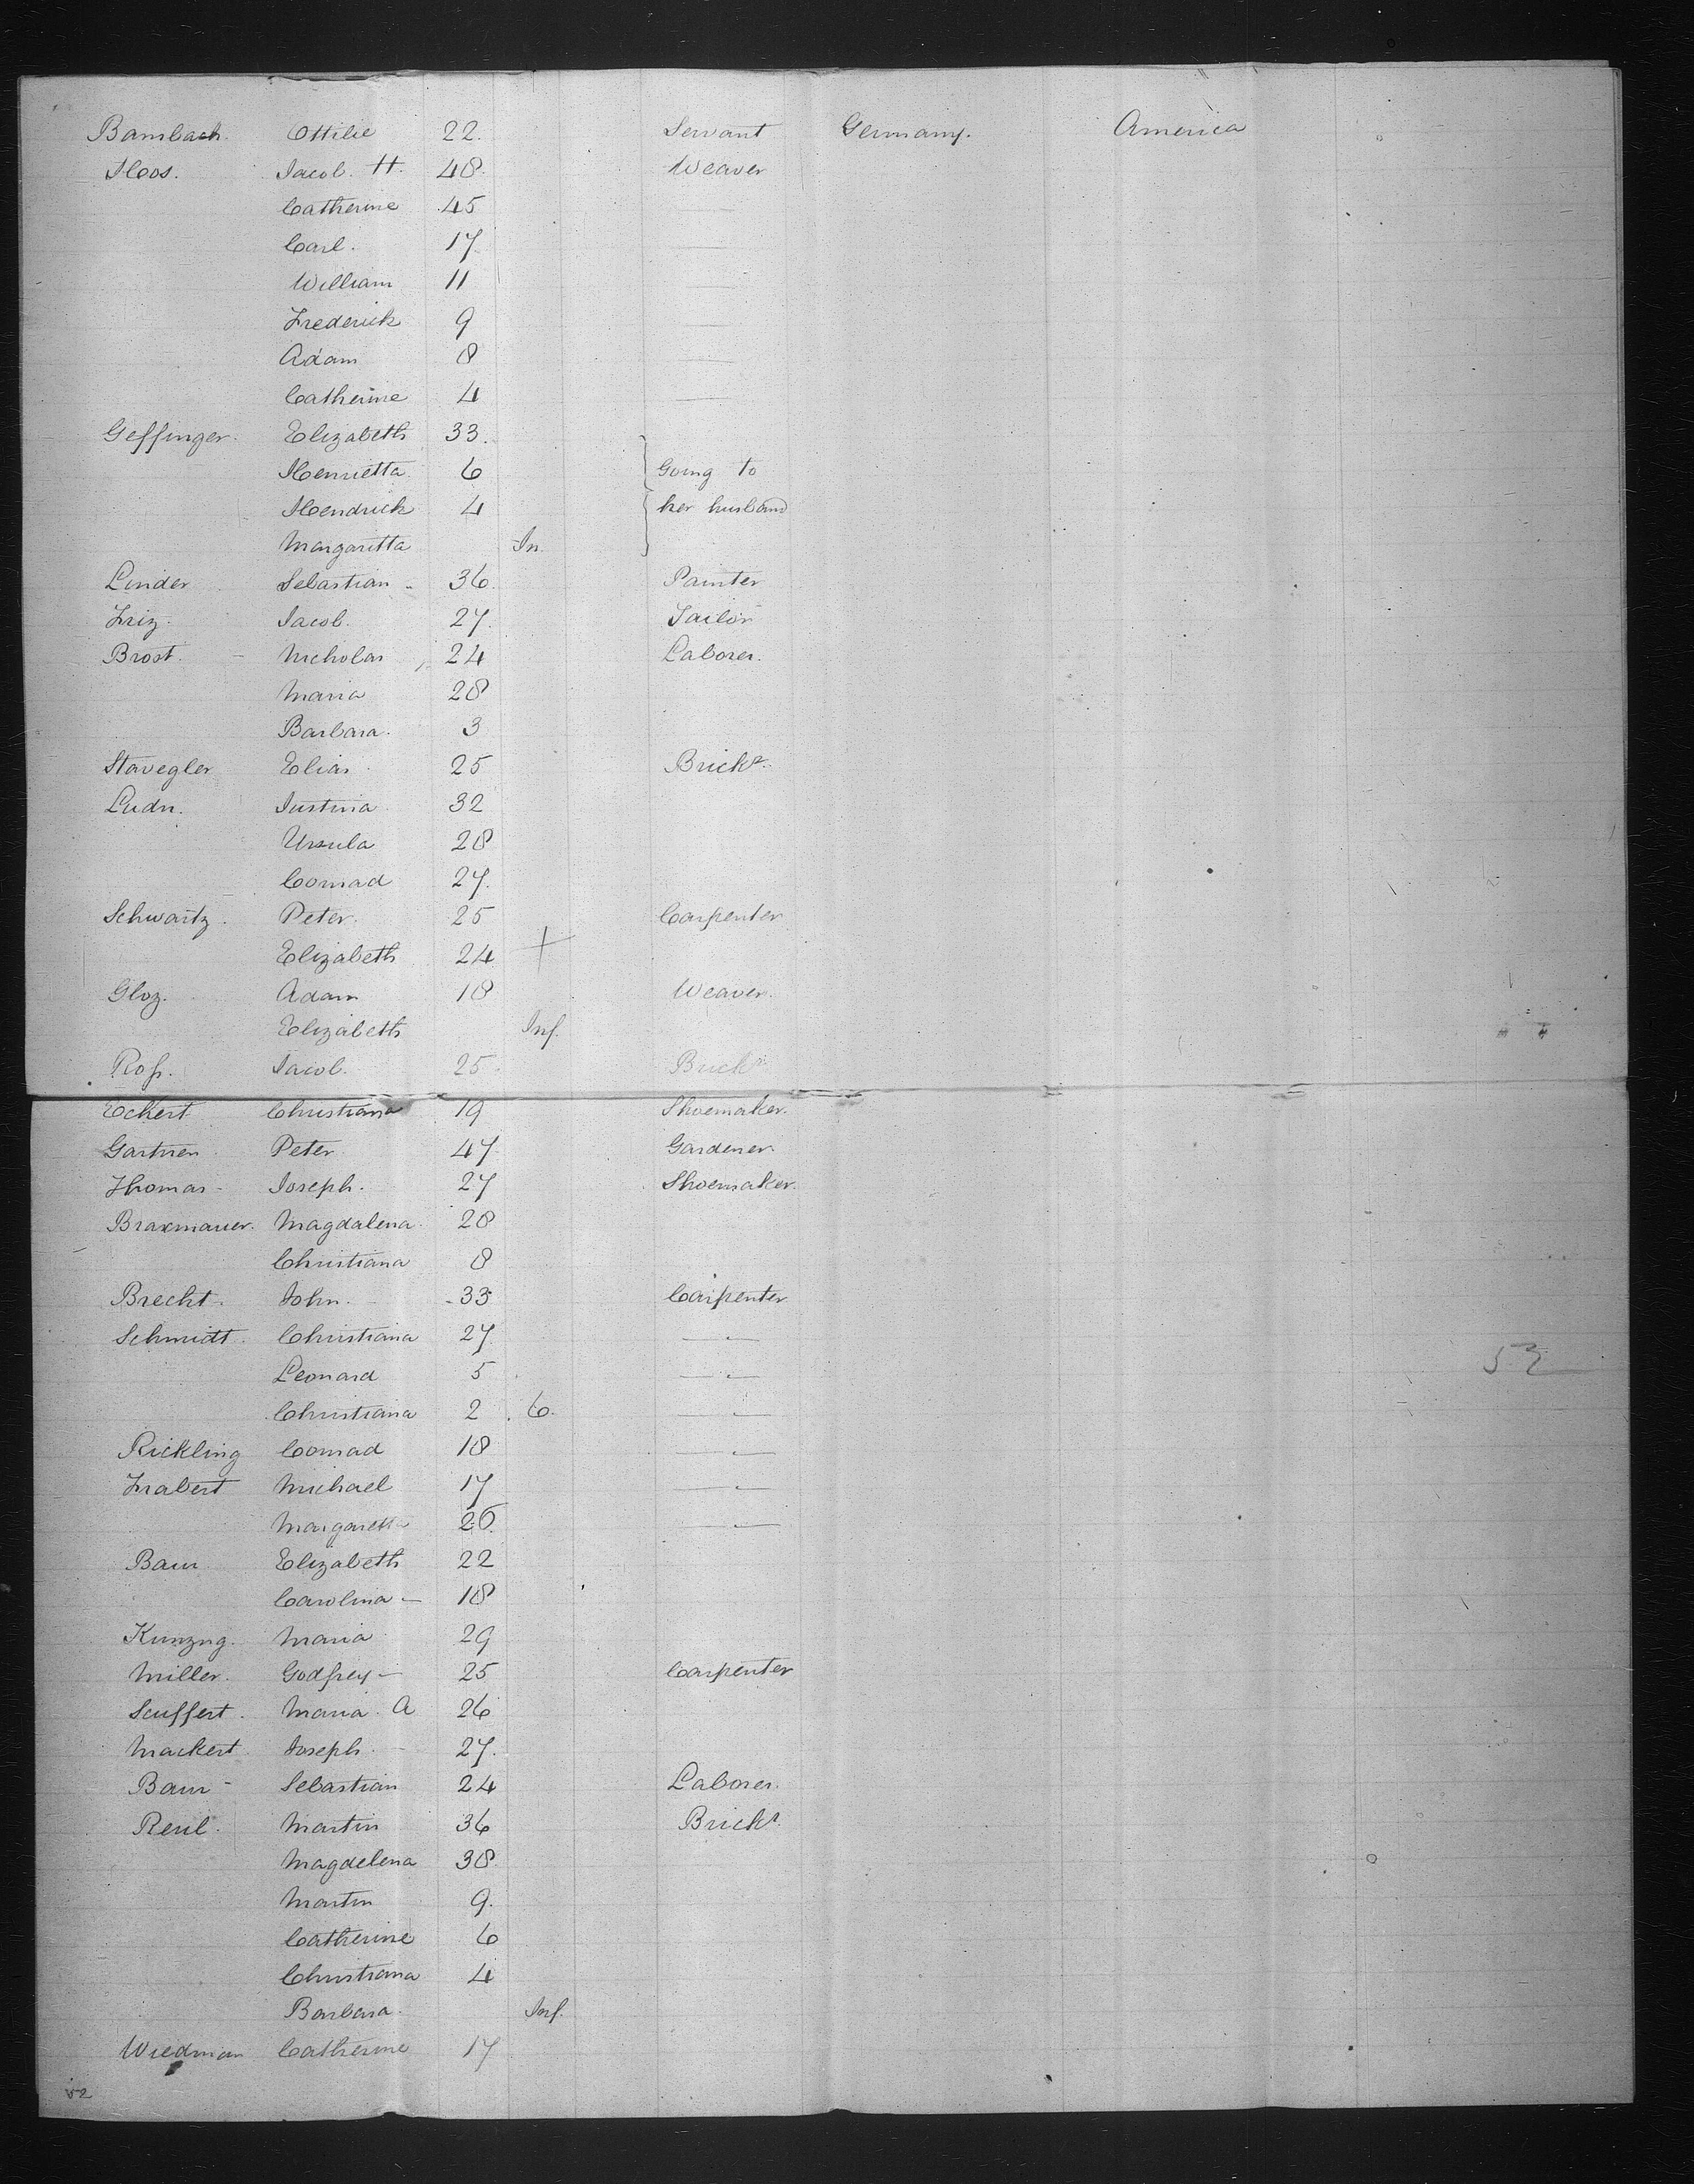 Bambach. Ottilie 22. Servant Germany. America
Hoos. Jacob. H. 48. Weaver
Catherine 45 —
Carl. 17 —
William 11 —
Frederick 9 —
Adam 8 —
Catherine 4 —
Geffinger. Elizabeth 33.
Henrietta 6 Going to
Hendrick 4 her husband
Margaritta In.
Linder Sebastian - 36. Painter
Friz. Jacob. 27. Tailor
Brost. - Nicholas 24 Laborer.
Maria 28
Barbara. 3
Stavegler Elias 25 Brickr.
Ludn. Justina 32
Ursula 28
Conrad 27.
Schwartz. Peter. 25 Carpenter
Elizabeth 24 +
Gloz. Adam 18 Weaver.
Elizabeth Inf.
Jacob. 25. Brickr.
Eckert Christiana 19 Shoemaker.
Peter 47 Gardener.
Thomas - Joseph. 27 Shoemaker.
Braxmauer. Magdalena. 28
Christiana 8
Brecht. John. - 33 Carpenter
Schmidt. Christiana 27. — " —
Leonard 5 — " — 52
Christiana 2 . 6. — " —
Rickling Conrad 18 — " —
Frabert Michael 17 — " —
Margaretta 26. — " —
Baur Elizabeth 22
Carolina — 18
Kunzng. Maria 29
Miller. Godfrey — 25 Carpenter
Seuffert. Maria. A 26
Mackert Joseph. - 27.
Baur - Sebastian 24 Laborer.
Reul. Martin 36 Brickr.
Magdelena 38.
Martin 9.
Catherine 6
Christiana 4
Barbara. Inf.
Wiedman Catherine 17
52